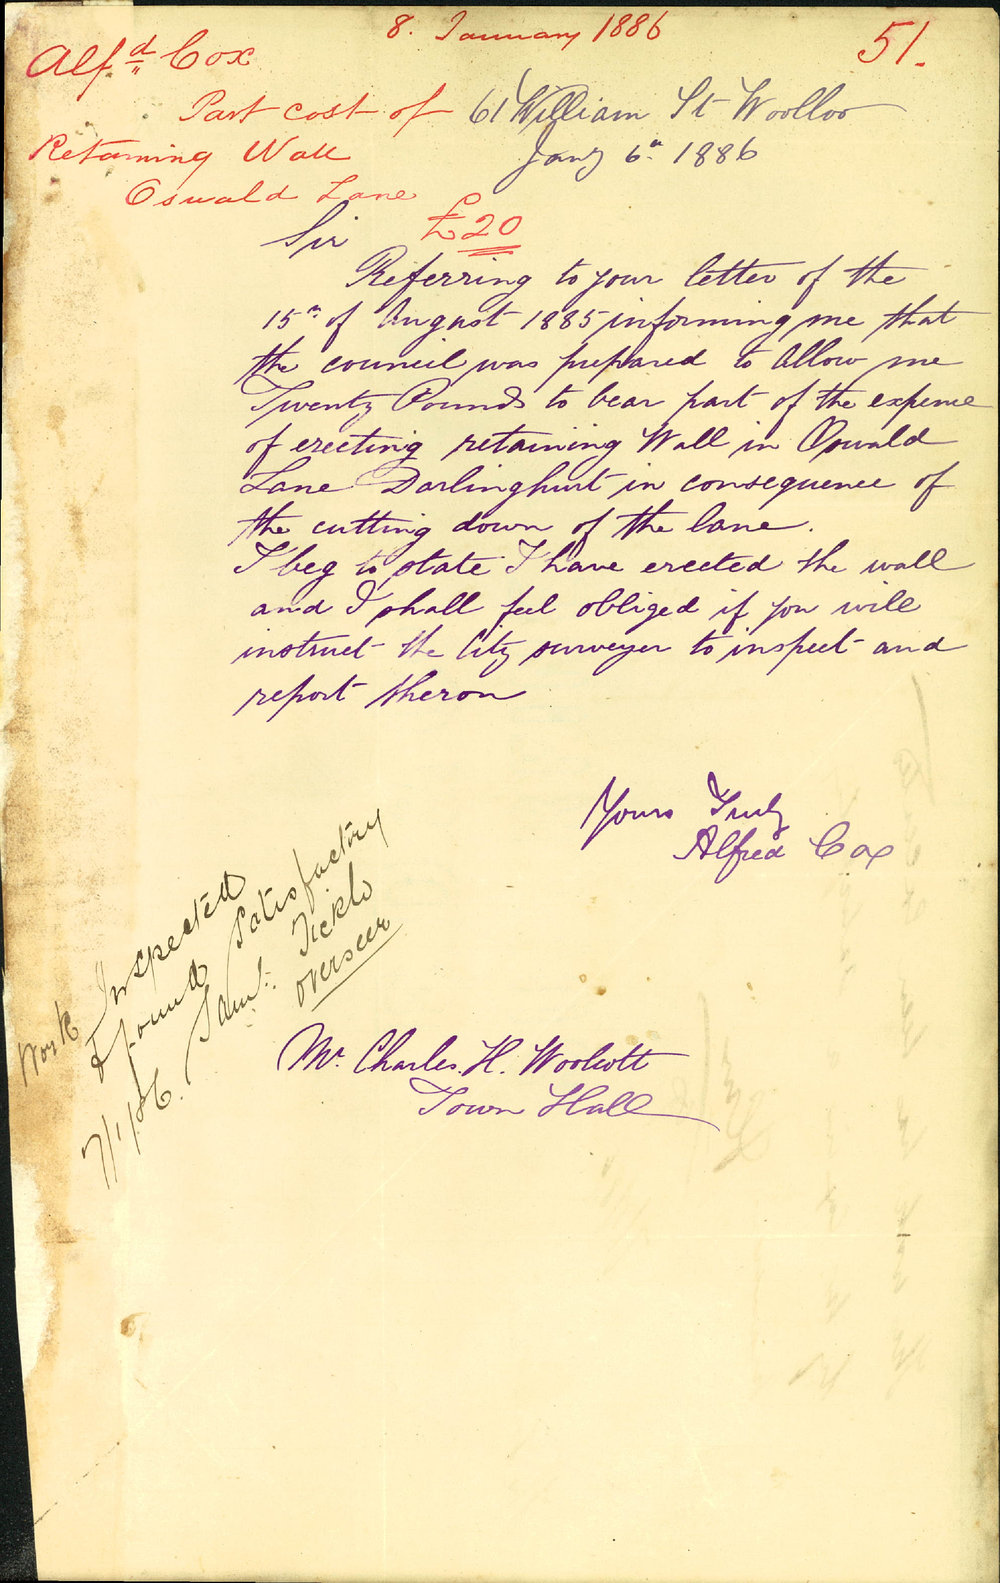 8. January 1886
51.
Alfd Cox
Part cost of
Retaining Wall
Oswald Lane
£20
61 William St Woolloo
Jany 6th 1886
Sir
Referring to your letter of the
15th of August 1885 informing me that
the council was prepared to allow me
Twenty Pounds to bear part of the expense
of erecting retaining Wall in Oswald
Lane Darlinghurst in consequence of
the cutting down of the lane.
I beg to state I have erected the wall
and I shall feel obliged if you will
instruct the City surveyor to inspect and
report theron
Yours Truly
Alfred Cox
Work Inspected
& found Satisfactory
7/1/86. Saml: Tickle
overseer
Mr. Charles. H. Woolcott
Town Hall